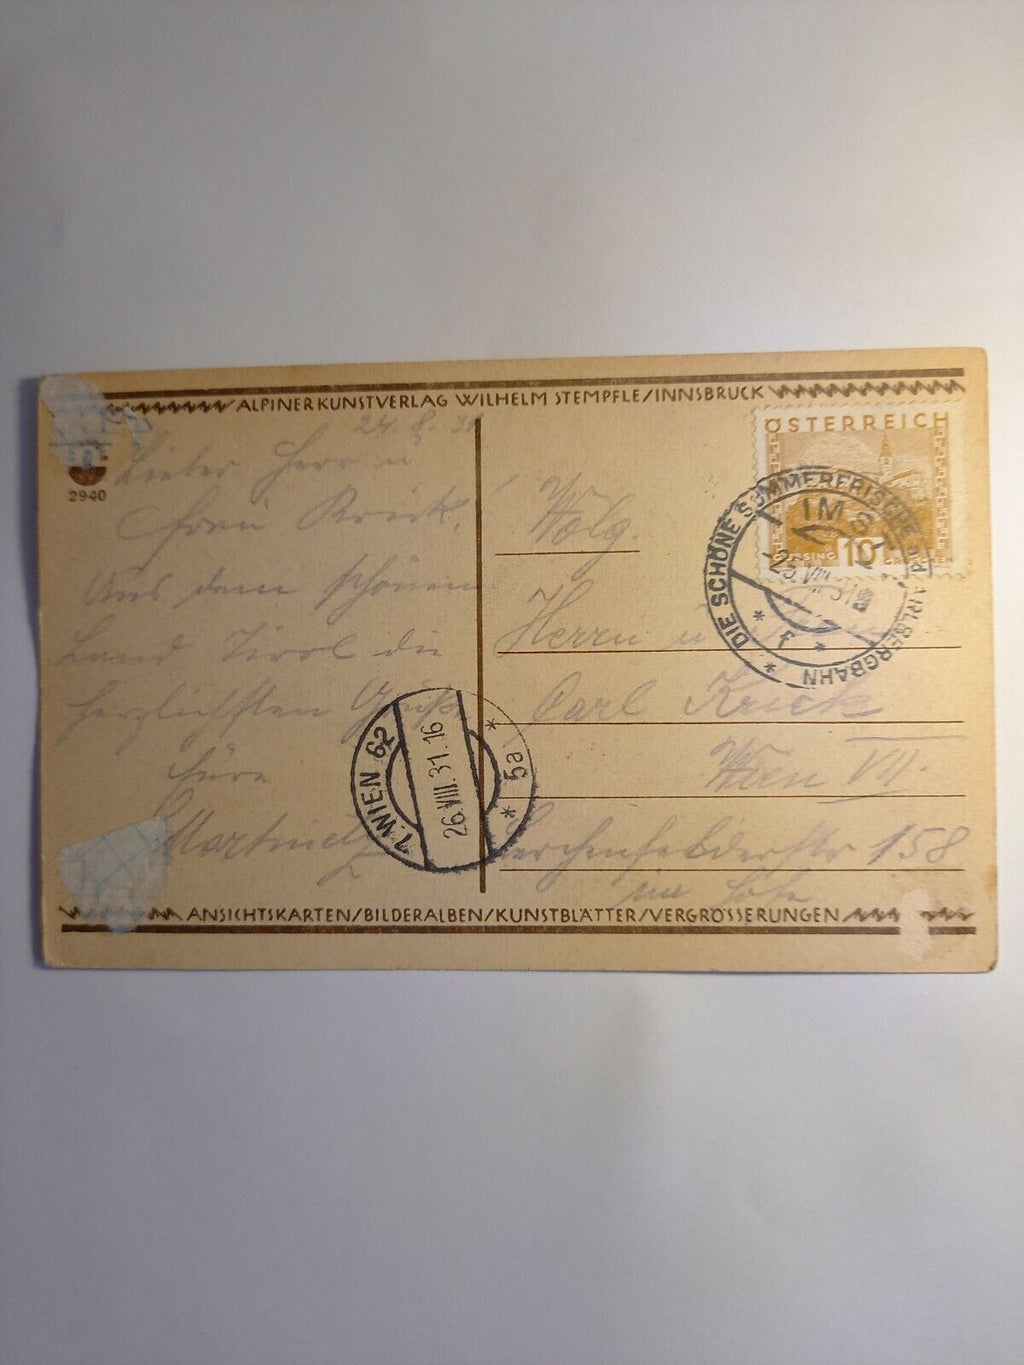 ALPINER KUNSTVERLAG WILHELM STEMPFLE/INNSBRUCK
2940
24. 8. 31
Lieber Herr u
Frau Krick!
Aus dem schönen
Land Tirol die
herzlichsten Grüße
Wolg.
Herrn u
Carl Krick
Wien VII.
Lerchenfelderstr 158
ÖSTERREICH
GÜSSING 10 GROSCHEN
DIE SCHÖNE SOMMERFRISCHE ARLBERGBAHN
IMST
25.VIII.31
* f *
1. WIEN 62
26.VIII.31.16
* 5a *
ANSICHTSKARTEN/BILDERALBEN/KUNSTBLÄTTER/VERGRÖSSERUNGEN